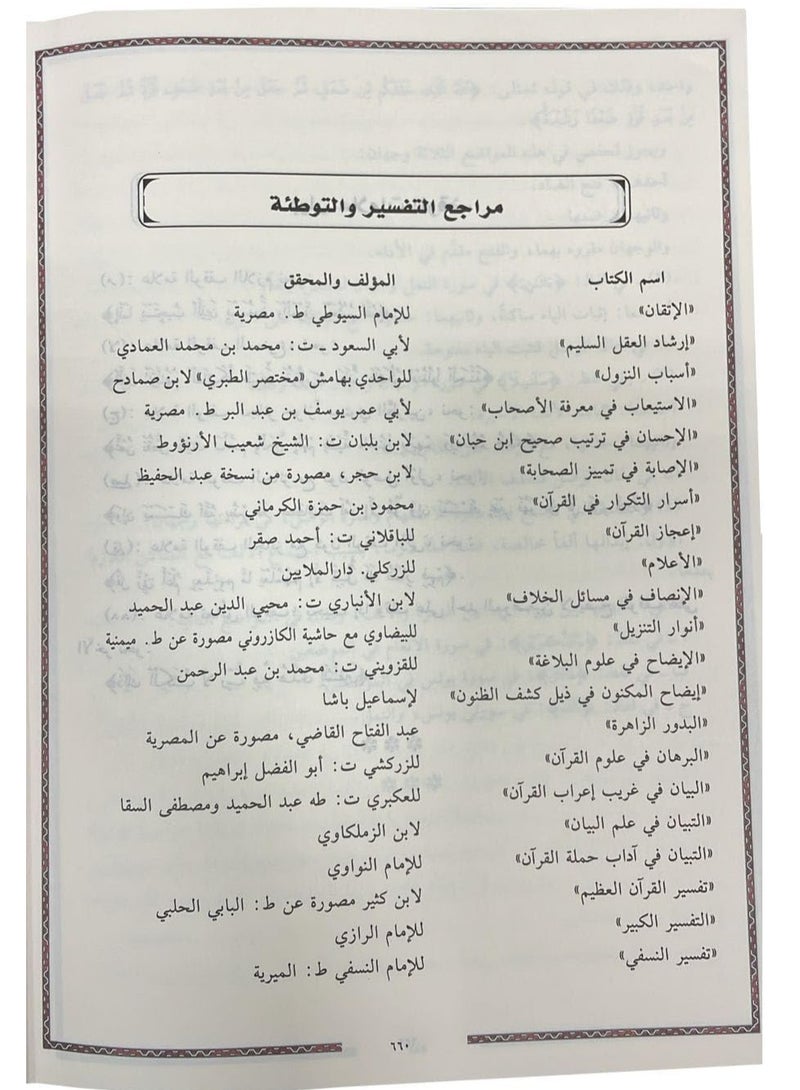 مراجع التفسير والتوطئة
اسم الكتاب المؤلف والمحقق
«الإتقان» للإمام السيوطي ط. مصرية
«إرشاد العقل السليم» لأبي السعود ـ ت: محمد بن محمد العمادي
«أسباب النزول» للواحدي بهامش «مختصر الطبري» لابن صمادح
«الاستيعاب في معرفة الأصحاب» لأبي عمر يوسف بن عبد البر ط. مصرية
«الإحسان في ترتيب صحيح ابن حبان» لابن بلبان ت: الشيخ شعيب الأرنؤوط
«الإصابة في تمييز الصحابة» لابن حجر، مصورة من نسخة عبد الحفيظ
«أسرار التكرار في القرآن» محمود بن حمزة الكرماني
«إعجاز القرآن» للباقلاني ت: أحمد صقر
«الأعلام» للزركلي. دارالملايين
«الإنصاف في مسائل الخلاف» لابن الأنباري ت: محيي الدين عبد الحميد
«أنوار التنزيل» للبيضاوي مع حاشية الكازروني مصورة عن ط. ميمنية
«الإيضاح في علوم البلاغة» للقزويني ت: محمد بن عبد الرحمن
«إيضاح المكنون في ذيل كشف الظنون» لإسماعيل باشا
«البدور الزاهرة» عبد الفتاح القاضي، مصورة عن المصرية
«البرهان في علوم القرآن» للزركشي ت: أبو الفضل إبراهيم
«البيان في غريب إعراب القرآن» للعكبري ت: طه عبد الحميد ومصطفى السقا
«التبيان في علم البيان» لابن الزملكاوي
«التبيان في آداب حملة القرآن» للإمام النواوي
«تفسير القرآن العظيم» لابن كثير مصورة عن ط: البابي الحلبي
«التفسير الكبير» للإمام الرازي
«تفسير النسفي» للإمام النسفي ط: الميرية
٦٦٠